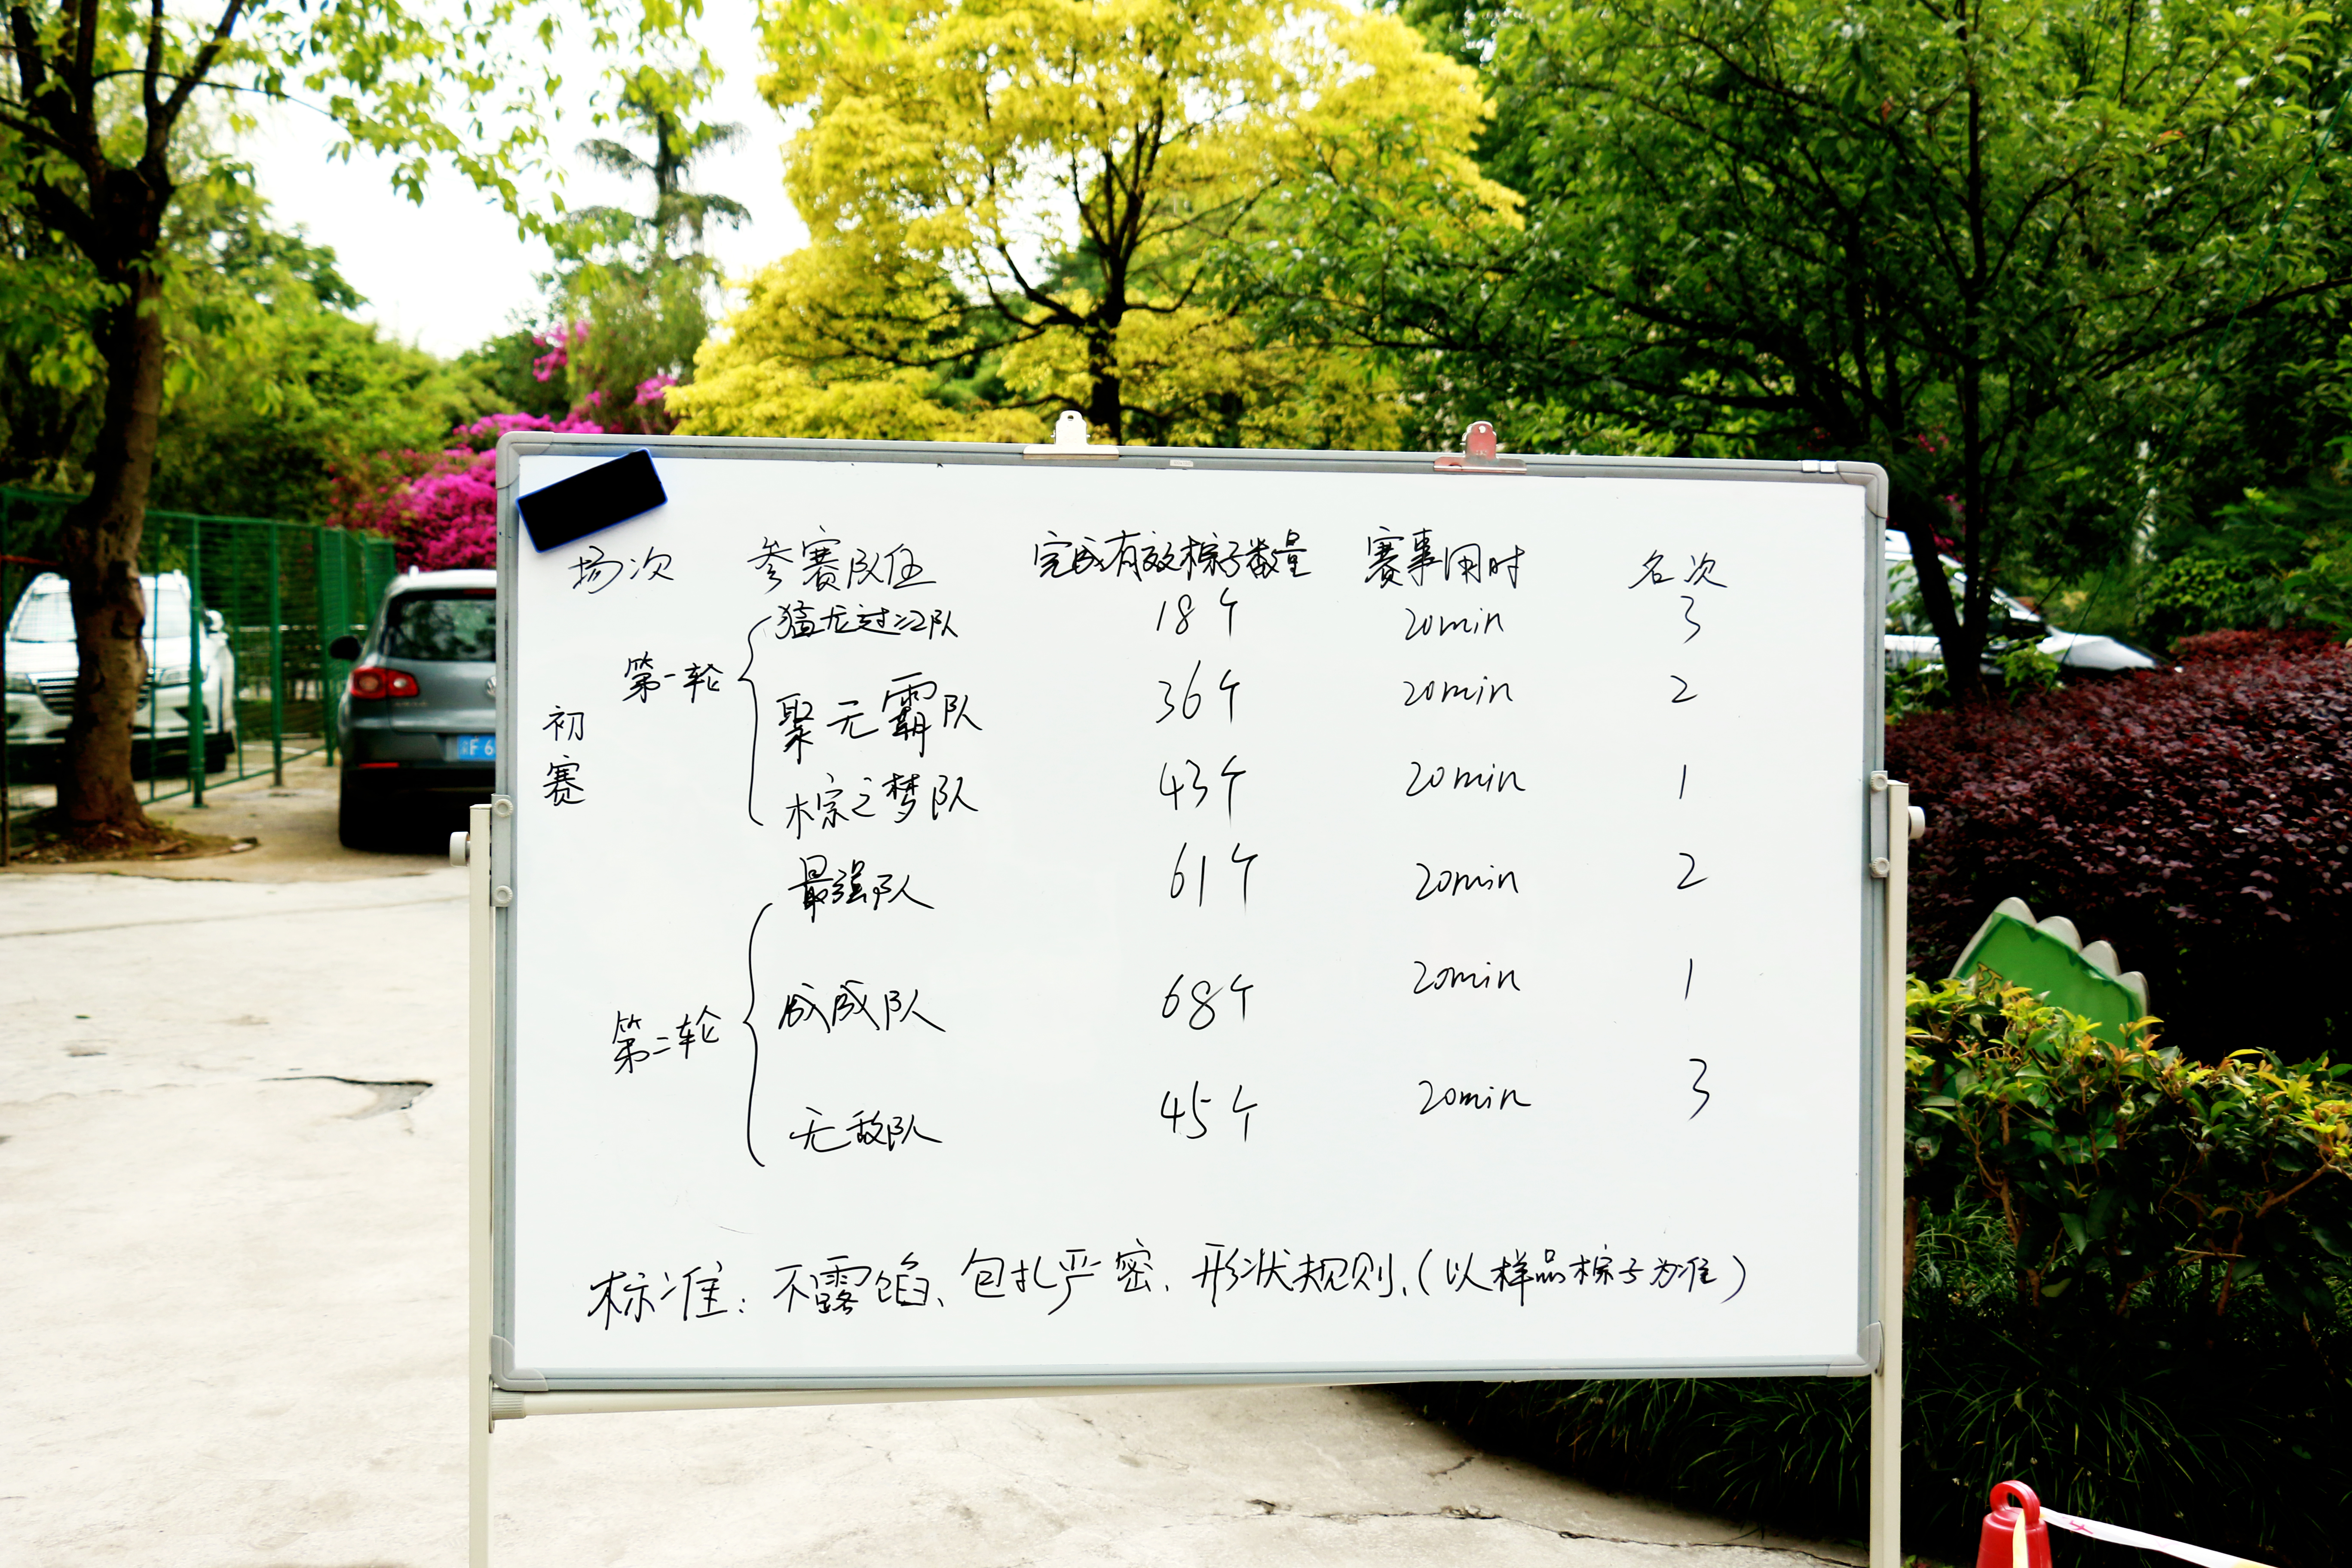 场次 参赛队伍 完成有效粽子数量 赛事用时 名次
初赛
第一轮
猛龙过江队 18个 20min 3
聚无霸队 36个 20min 2
粽之梦队 43个 20min 1
第二轮
最强队 61个 20min 2
成成队 68个 20min 1
无敌队 45个 20min 3
标准：不露馅、包扎严密、形状规则、（以样品粽子为准）